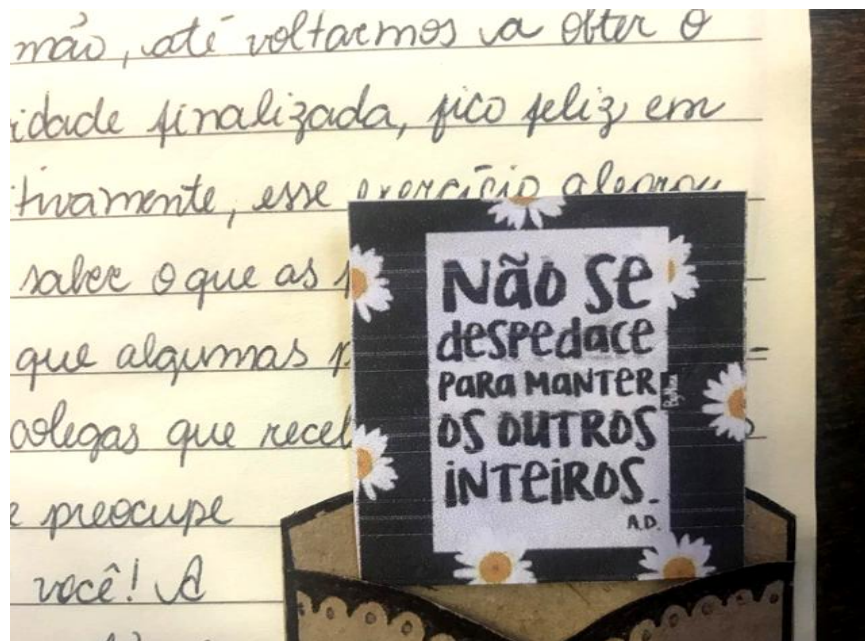 mão, até voltarmos a obter o
idade finalizada, fico feliz em
tivamente, esse exercício alegrou
saber o que as
que algumas p
colegas que recel
e preocupe
você! A
Não se
despedace
para manter
os outros
inteiros.
A.D.